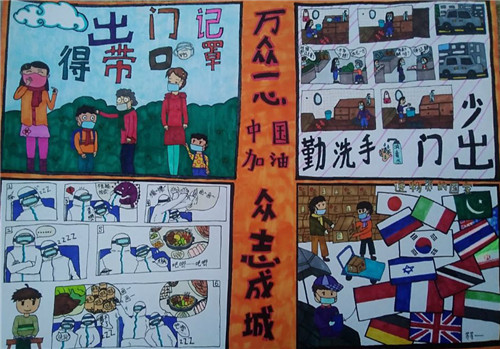 出门记
得带口罩
万众一心
中国
加油
众志成城
少出门
勤洗手
zzZ
zzZ
zzZ